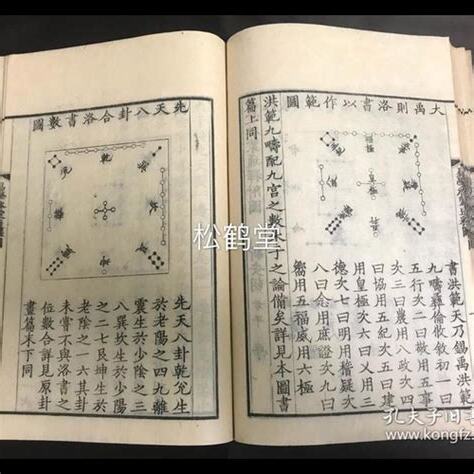 大禹則洛書以作範圖
書洪範天乃錫禹洪範
九疇彝倫攸敘初一曰
五行次二曰敬用五事
次三曰農用八政次四
曰協用五紀次五曰建
用皇極次六曰乂用三
德次七曰明用稽疑次
八曰念用庶證次九曰
嚮用五福威用六極
洪範九疇配九宮之數朱子之論備矣詳見本圖書
篇上同
先天八卦合洛書數圖
乾
先天八卦乾兌生
於老陽之四九離
震生於少陰之三
八巽坎生於少陽
之二七艮坤生於
老陰之一六其卦
未嘗不與洛書之
位數合詳見原卦
畫篇末下同
松鹤堂
孔夫子旧
www.kongfz